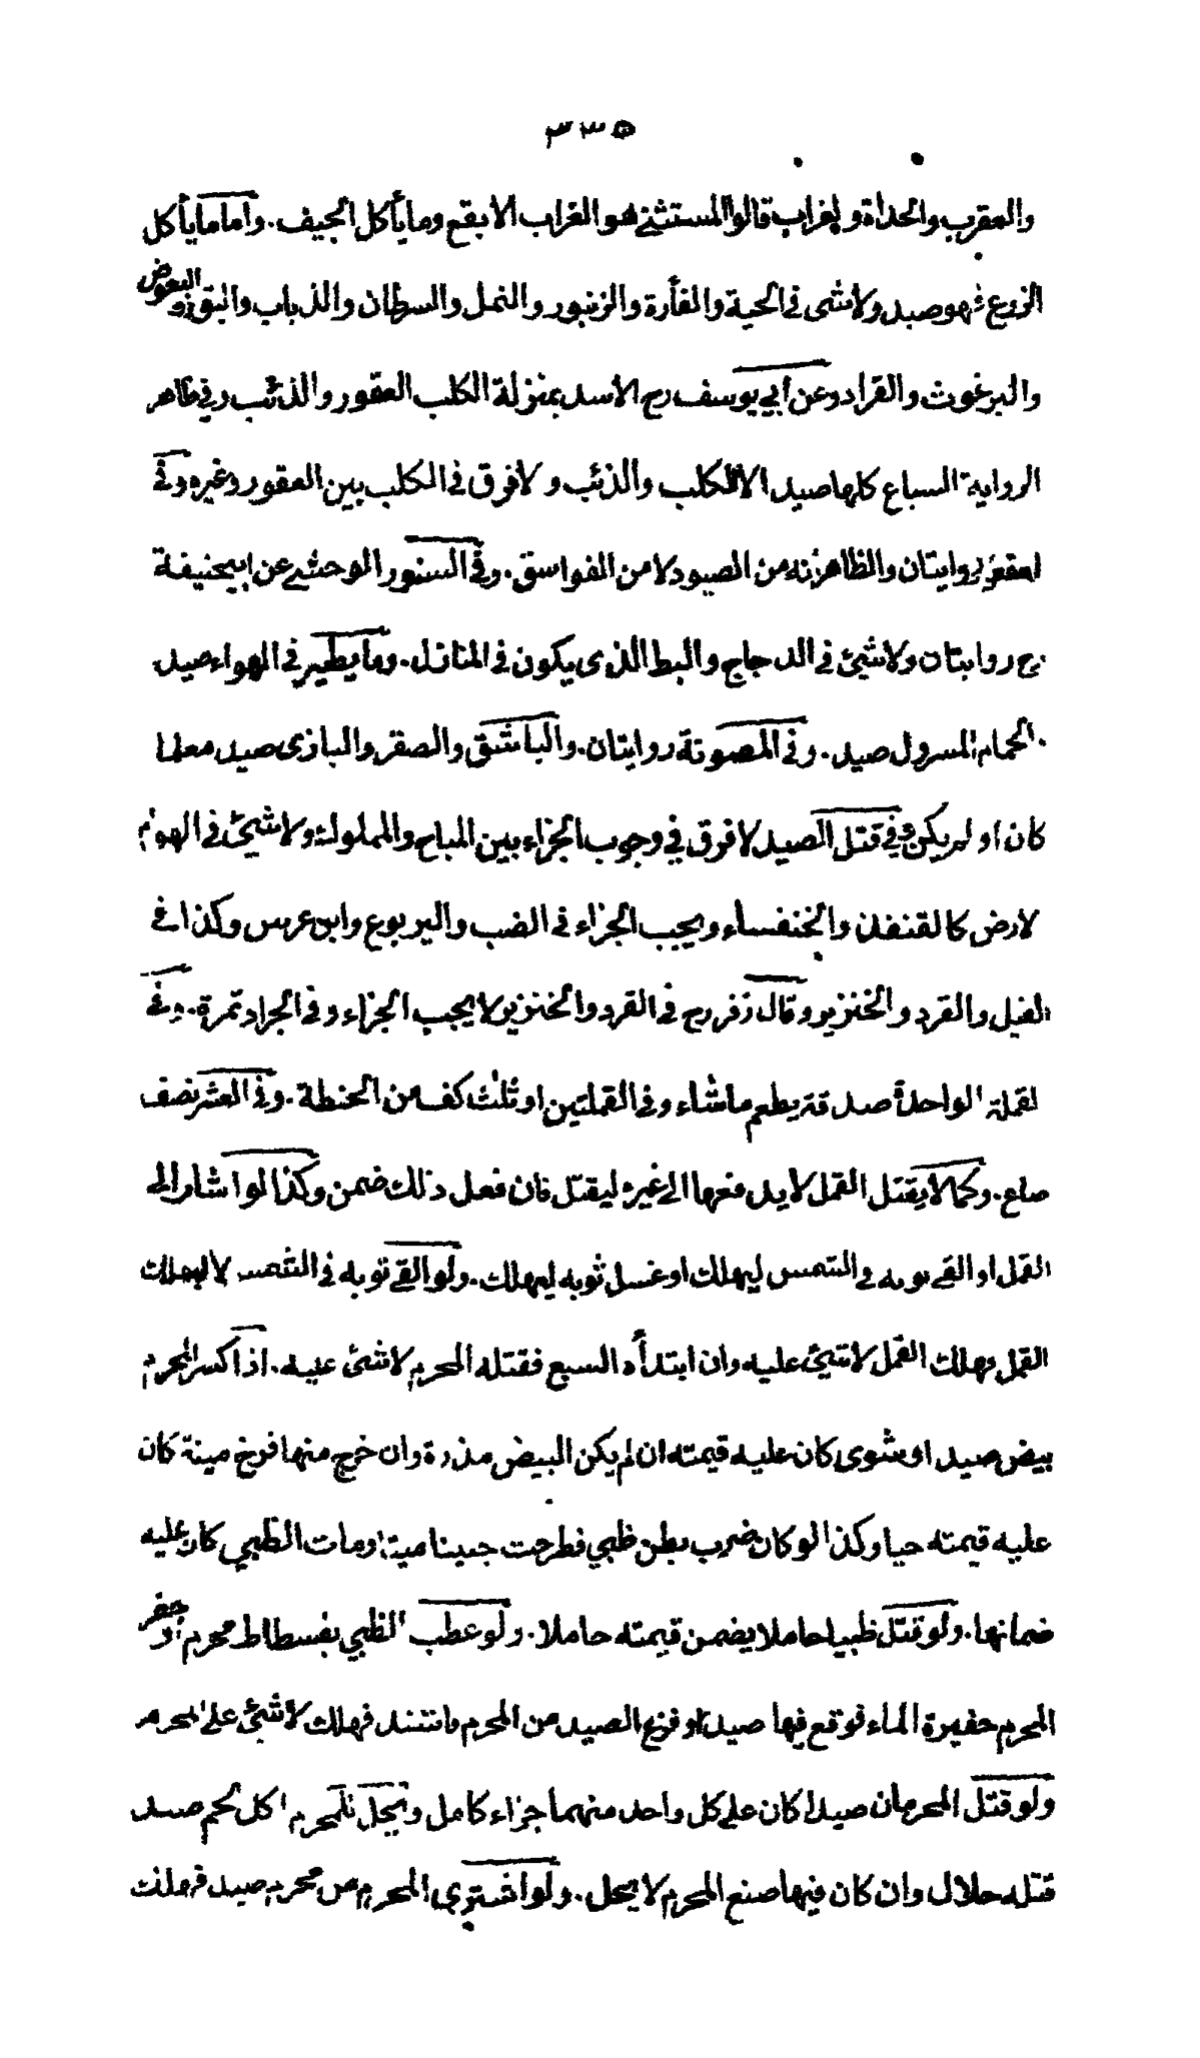 ٣٣٥
والعقرب والحداة والغراب قالوا المستثنى هو الغراب الابقع وما يأكل الجيف. واما ما يأكل
الزرع فهو صيد ولا شى فى الحية والفأرة والزنبور والنمل والسرطان والذباب والبق والبعوض
والبرغوث والقراد وعن أبي يوسف رح الاسد بمنزلة الكلب العقور والذئب وفي ظاهر
الرواية السباع كلها صيد الا الكلب والذئب ولا فرق فى الكلب بين العقور وغيره وفى
روايتان والظاهر أنه من الصيود لا من الفواسق. وفى السنور الوحشي عن ابيحنيفة
رح روايتان ولا شيئ فى الدجاج والبط الذى يكون فى المنازل. وما يطير فى الهواء صيد
الحمام المسرول صيد. وفى المصوتة روايتان. والباشق والصقر والبازى صيد معلما
كان او لم يكن وفي قتل الصيد لا فرق في وجوب الجزاء بين المباح والمملوك ولا شيئ فى الهوام
لارض كالقنفذ والخنفساء ويجب الجزاء فى الضب واليربوع وابن عرس وكذا فى
الفيل والقرد والخنزير وقال زفر رح فى القرد والخنزير لا يجب الجزاء وفى الجراد تمرة. وفى
لقملة الواحدة صدقة يطعم ما شاء وفى القملتين او ثلث كف من الحنطة. وفى العشر نصف
صاع. وكما لا يقتل القمل لا يدفعها الى غيره ليقتل فان فعل ذلك ضمن وكذا لو اشار الى
القمل او القى ثوبه فى الشمس ليهلك او غسل ثوبه ليهلك. ولو القى ثوبه فى الشمس لا ليهلك
القمل فهلك القمل لا شيئ عليه وان ابتدأه السبع فقتله المحرم لا شئ عليه. اذا كسر المحرم
بيض صيد او شوى كان عليه قيمته ان لم يكن البيض مذرة وان خرج منها فرخ ميتة كان
عليه قيمته حيا وكذا لو كان ضرب بطن ظبي فطرحت جنينا ميتا ومات الظبي كان عليه
ضمانها. ولو قتل ظبيا حاملا يضمن قيمته حاملا. ولو عطب الظبي بفسطاط محرم او حفر
المحرم حفيرة الماء فوقع فيها صيد او فزع الصيد من المحرم فهلك لا شيئ على المحرم
ولو قتل المحرمان صيدا كان على كل واحد منهما جزاء كامل ويحل للمحرم اكل لحم صيد
قتله حلال وان كان فيها صنع المحرم لا يحل. ولو اشترى المحرم من محرم صيد فهلك